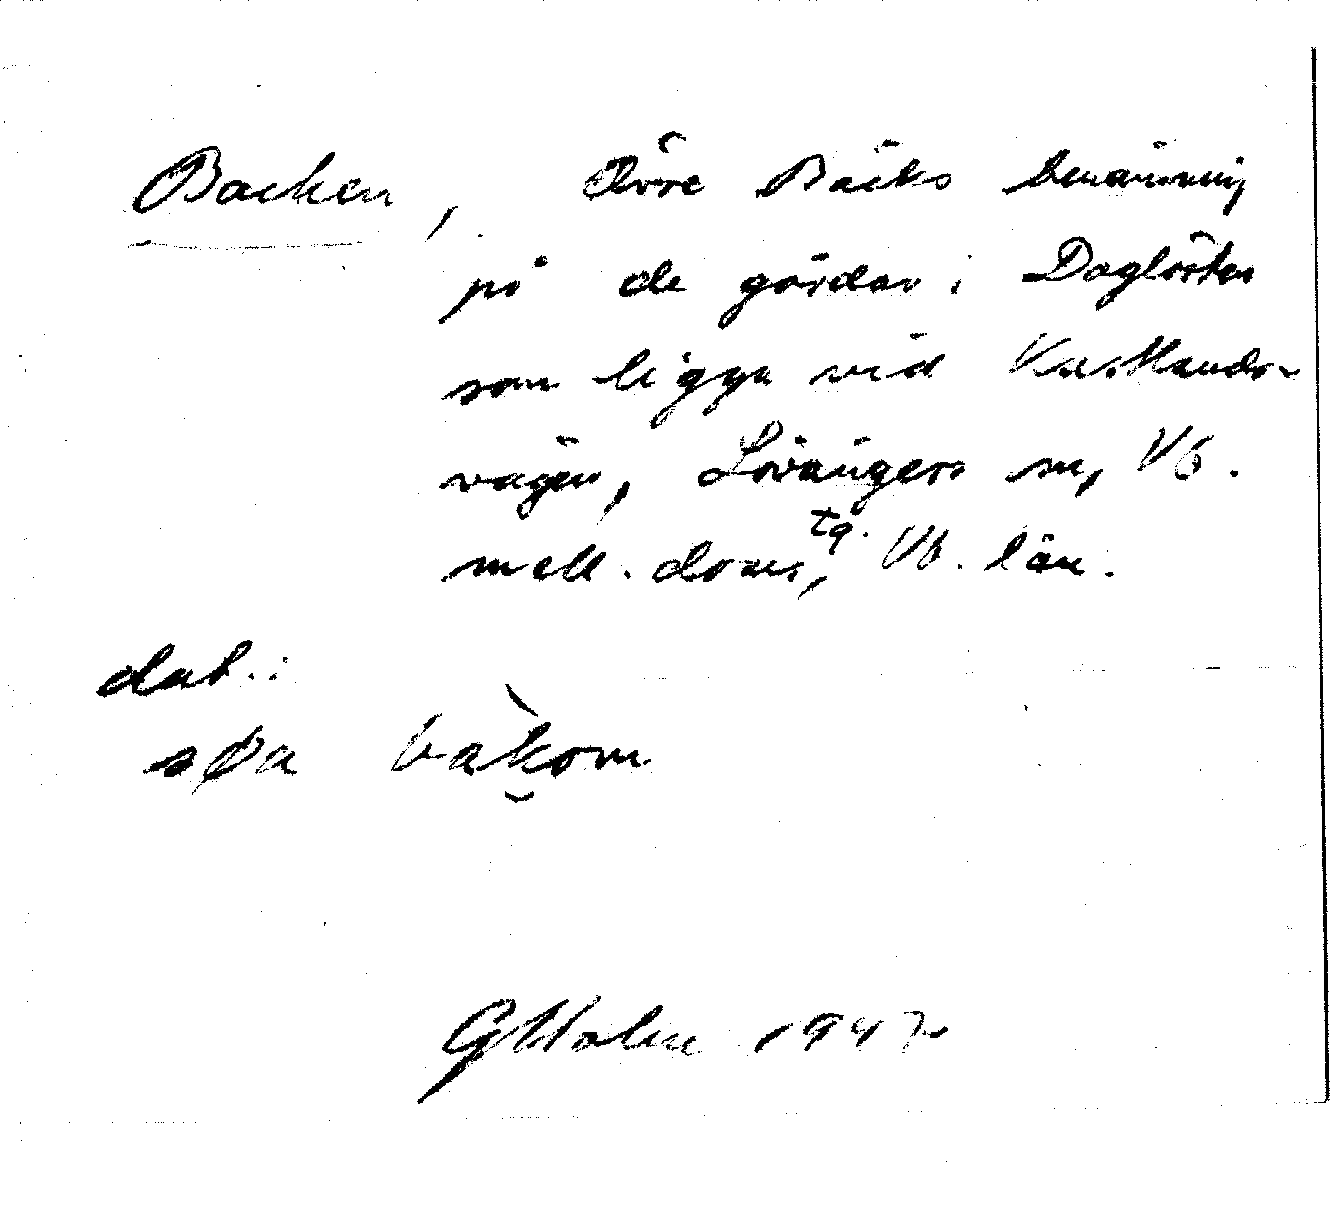 Backen, Övre Bäcks benämning
på de gårdar i Daglösten
som ligga vid Kustlands-
vägen, Lövångers sn, Vb.
mell. doms, tg. Vb. län.
dat.:
bakom
GHolm 1947